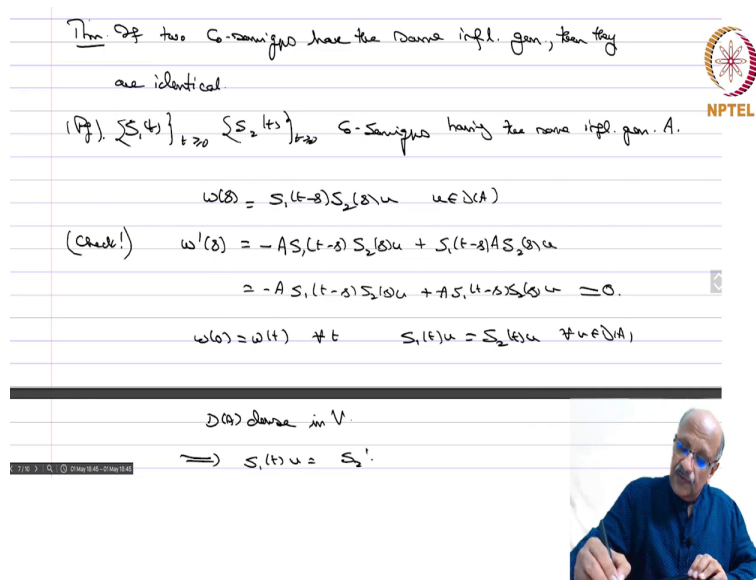 Thm. If two C₀-semigps have the same infl. gen., then they
are identical.
(Pf). {S₁(t)}_{t≥0} {S₂(t)}_{t≥0} C₀-semigps having the same infl. gen. A.
w(s) = S₁(t-s)S₂(s)u u∈D(A)
(Check!) w'(s) = -AS₁(t-s)S₂(s)u + S₁(t-s)AS₂(s)u
= -AS₁(t-s)S₂(s)u + AS₁(t-s)S₂(s)u = 0.
w(0) = w(t) ∀t S₁(t)u = S₂(t)u ∀u∈D(A)
D(A) dense in V.
⟹ S₁(t)u = S₂
NPTEL
7/10 01 May 18:45 - 01 May 18:45